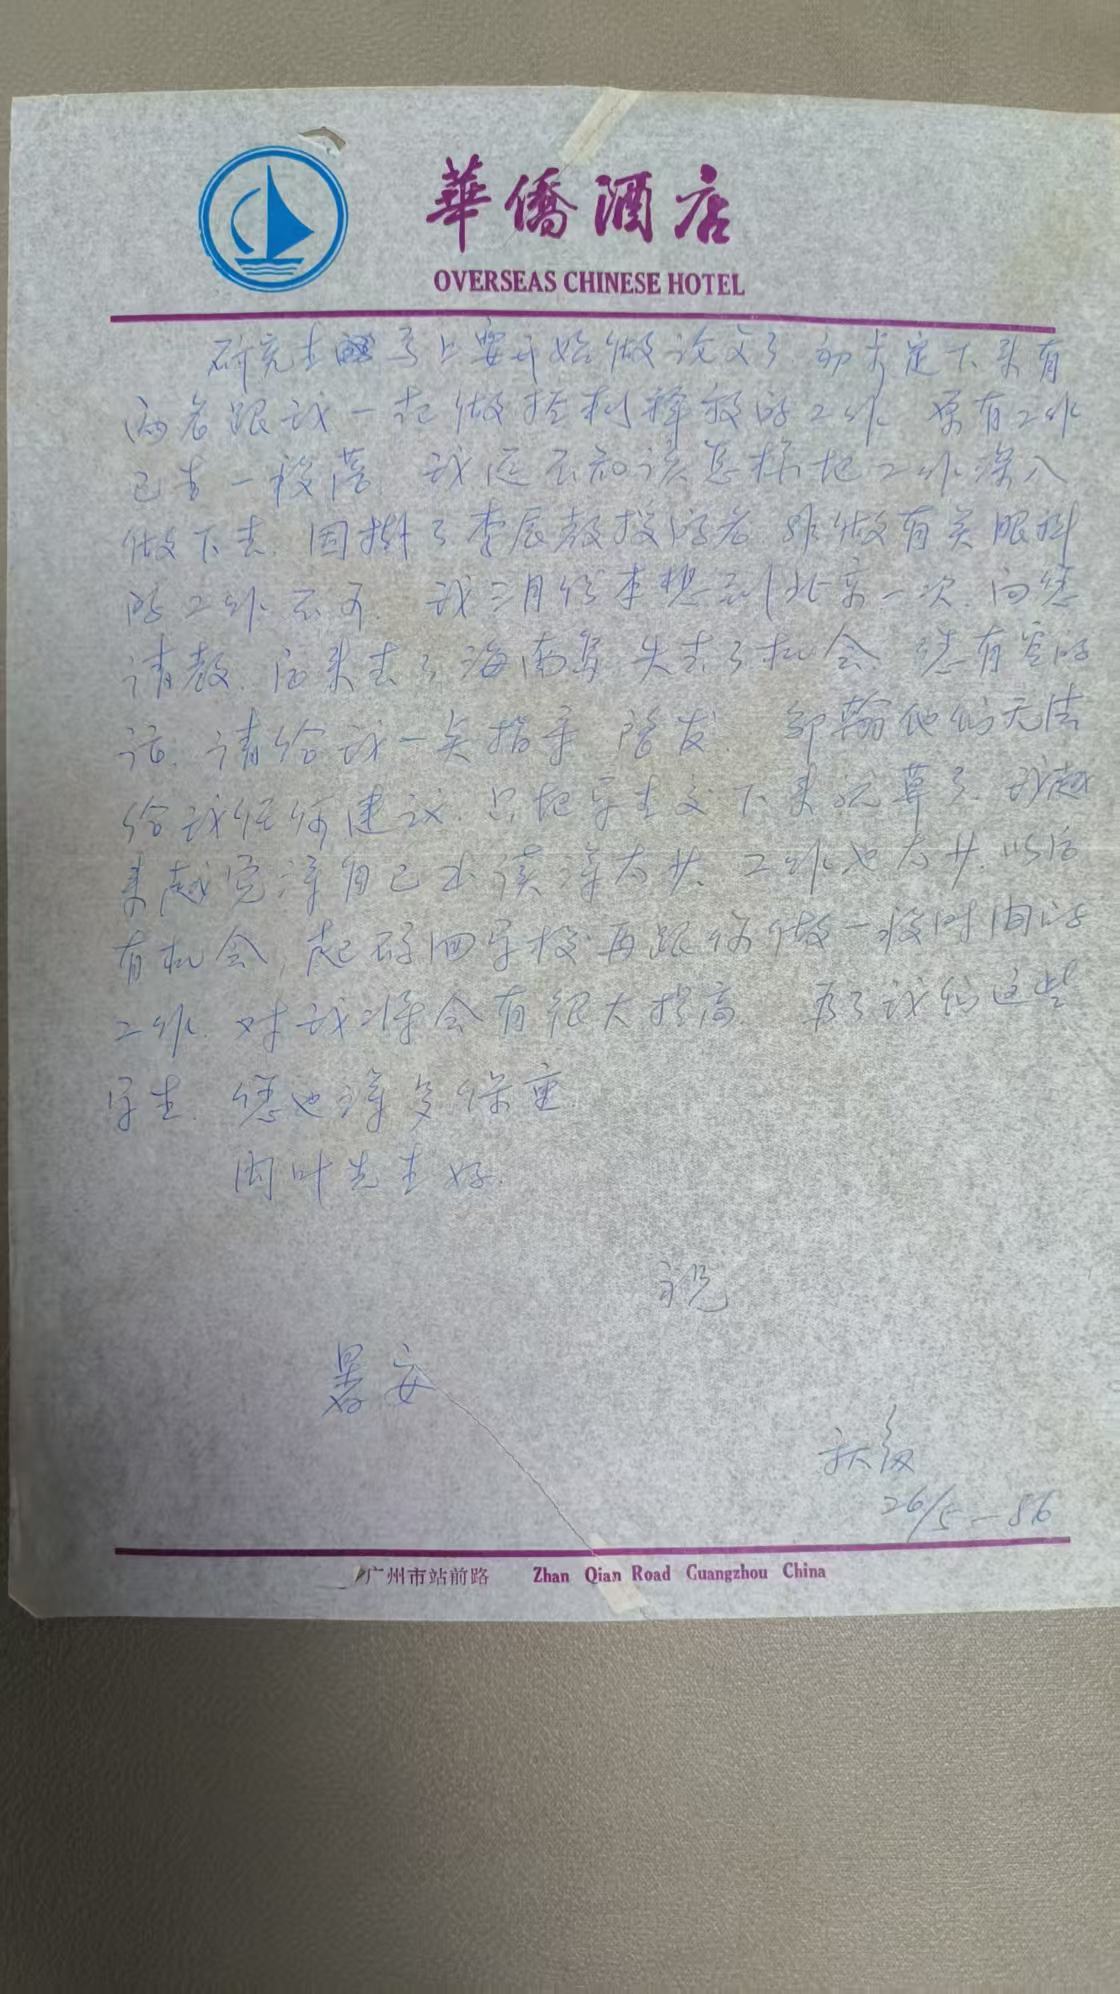 華僑酒店
OVERSEAS CHINESE HOTEL
研究生马上要开始做论文了 初步定下来有
两名跟我一起做控制释放的工作 原有工作
已告一段落 我还不知该怎样把工作深入
做下去. 因挂了李辰教授的名 非做有关眼科
的工作不可. 我三月份本想到北京一次 向您
请教. 后来去了海南岛 失去了机会. 您有空的
话. 请给我一点指导 启发. 邹翰他们无法
给我任何建议. 只把学生交下来就算了. 我越
来越觉得自己书读得太少. 工作也太少. 以后
有机会, 起码回学校再跟你做一段时间的
工作. 对我将会有很大提高. 为了我们这些
学生. 您也得多保重.
问叶先生好.
祝
暑安
26/5-86
广州市站前路 Zhan Qian Road Guangzhou China